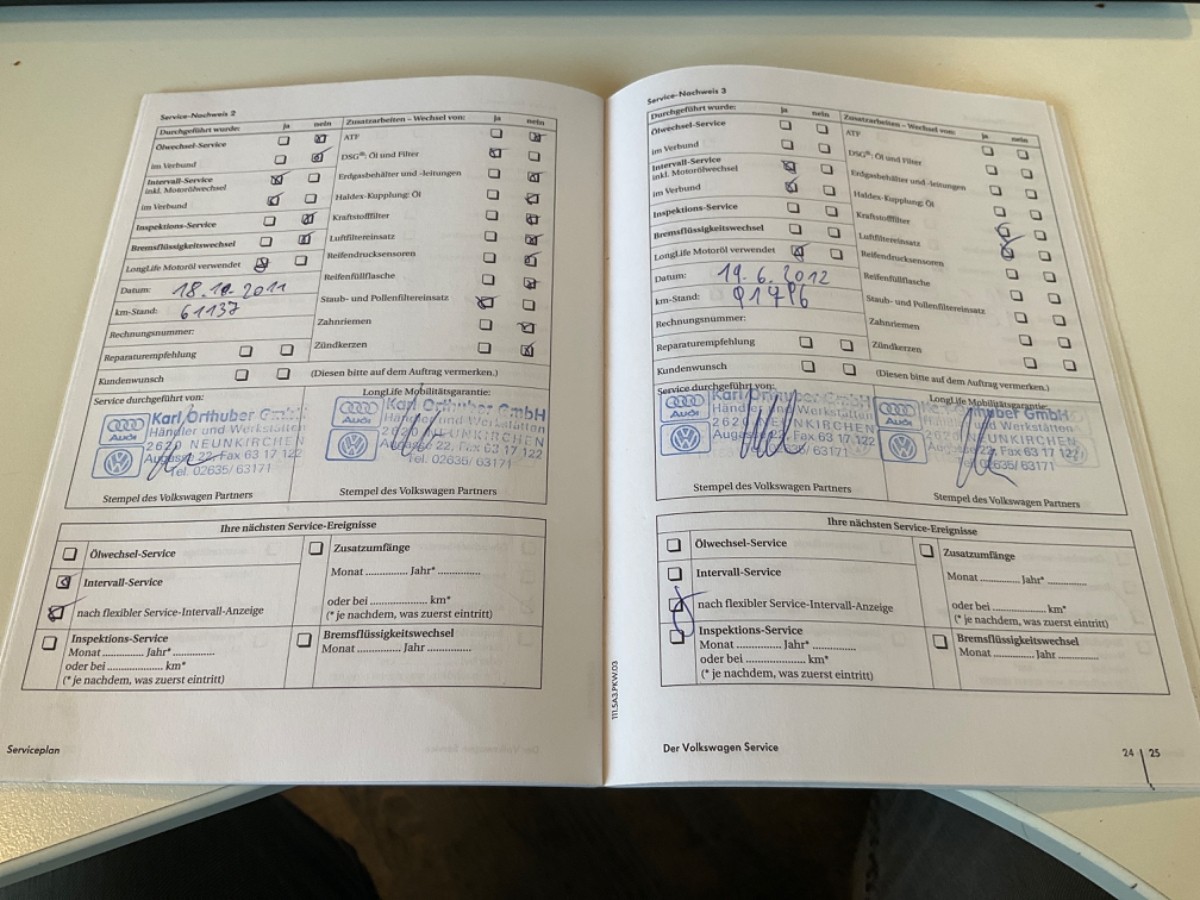 Service-Nachweis 2
Durchgeführt wurde: ja nein Zusatzarbeiten – Wechsel von: ja nein
Ölwechsel-Service ATF
im Verbund DSG®: Öl und Filter
Intervall-Service
inkl. Motorölwechsel Erdgasbehälter und -leitungen
im Verbund Haldex-Kupplung: Öl
Inspektions-Service Kraftstofffilter
Bremsflüssigkeitswechsel Luftfiltereinsatz
LongLife Motoröl verwendet Reifendrucksensoren
Datum: 18.10.2011 Reifenfüllflasche
km-Stand: 61137 Staub- und Pollenfiltereinsatz
Rechnungsnummer: Zahnriemen
Reparaturempfehlung Zündkerzen
Kundenwunsch (Diesen bitte auf dem Auftrag vermerken.)
Service durchgeführt von: LongLife Mobilitätsgarantie:
Karl Orthuber GmbH Karl Orthuber GmbH
Händler und Werkstätten Händler und Werkstätten
2620 NEUNKIRCHEN 2620 NEUNKIRCHEN
Augasse 22, Fax 63 17 122 Augasse 22, Fax 63 17 122
Tel. 02635/ 63171 Tel. 02635/ 63171
Audi Audi
Stempel des Volkswagen Partners Stempel des Volkswagen Partners
Ihre nächsten Service-Ereignisse
Ölwechsel-Service Zusatzumfänge
Intervall-Service Monat .............. Jahr* ..............
nach flexibler Service-Intervall-Anzeige oder bei .................... km*
(* je nachdem, was zuerst eintritt)
Inspektions-Service Bremsflüssigkeitswechsel
Monat .............. Jahr* .............. Monat .............. Jahr ..............
oder bei .................... km*
(* je nachdem, was zuerst eintritt)
Serviceplan
Service-Nachweis 3
Durchgeführt wurde: ja nein Zusatzarbeiten – Wechsel von: ja nein
Ölwechsel-Service ATF
im Verbund DSG®: Öl und Filter
Intervall-Service
inkl. Motorölwechsel Erdgasbehälter und -leitungen
im Verbund Haldex-Kupplung: Öl
Inspektions-Service Kraftstofffilter
Bremsflüssigkeitswechsel Luftfiltereinsatz
LongLife Motoröl verwendet Reifendrucksensoren
Datum: 19.6.2012 Reifenfüllflasche
km-Stand: Staub- und Pollenfiltereinsatz
Rechnungsnummer: Zahnriemen
Reparaturempfehlung Zündkerzen
Kundenwunsch (Diesen bitte auf dem Auftrag vermerken.)
Service durchgeführt von: LongLife Mobilitätsgarantie:
Karl Orthuber GmbH Orthuber GmbH
Händler und Werkstätten Händler und Werkstätten
2620 NEUNKIRCHEN 2620 NEUNKIRCHEN
Augasse 22, Fax 63 17 122 Augasse 22, Fax 63 17 122
02635/ 63171 Tel. 02635/ 63171
Audi Audi
Stempel des Volkswagen Partners Stempel des Volkswagen Partners
Ihre nächsten Service-Ereignisse
Ölwechsel-Service Zusatzumfänge
Intervall-Service Monat .............. Jahr* ..............
nach flexibler Service-Intervall-Anzeige oder bei .................... km*
(* je nachdem, was zuerst eintritt)
Inspektions-Service Bremsflüssigkeitswechsel
Monat .............. Jahr* .............. Monat .............. Jahr ..............
oder bei .................... km*
(* je nachdem, was zuerst eintritt)
111.5A3.PKW.03
Der Volkswagen Service 24 25